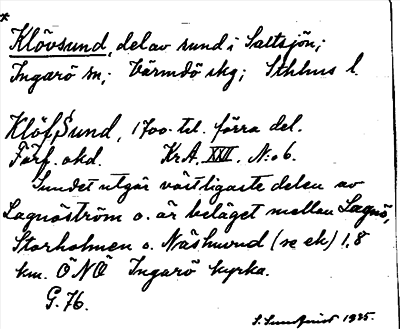 *
Klövsund, del av sund i Saltsjön;
Ingarö sn; Värmdö skg; Sthlms l.
Klöf Sund, 1700-tal. förra del.
Förf. okd. KrA. XXII. N:o 6.
Sundet utgör västligaste delen av
Lagnöström o. är beläget mellan Lagnö,
Storholmen o. Näshuvud (se ek) 1,8
km. ÖNÖ Ingarö kyrka.
G. 76.
S. Sundquist 1935.